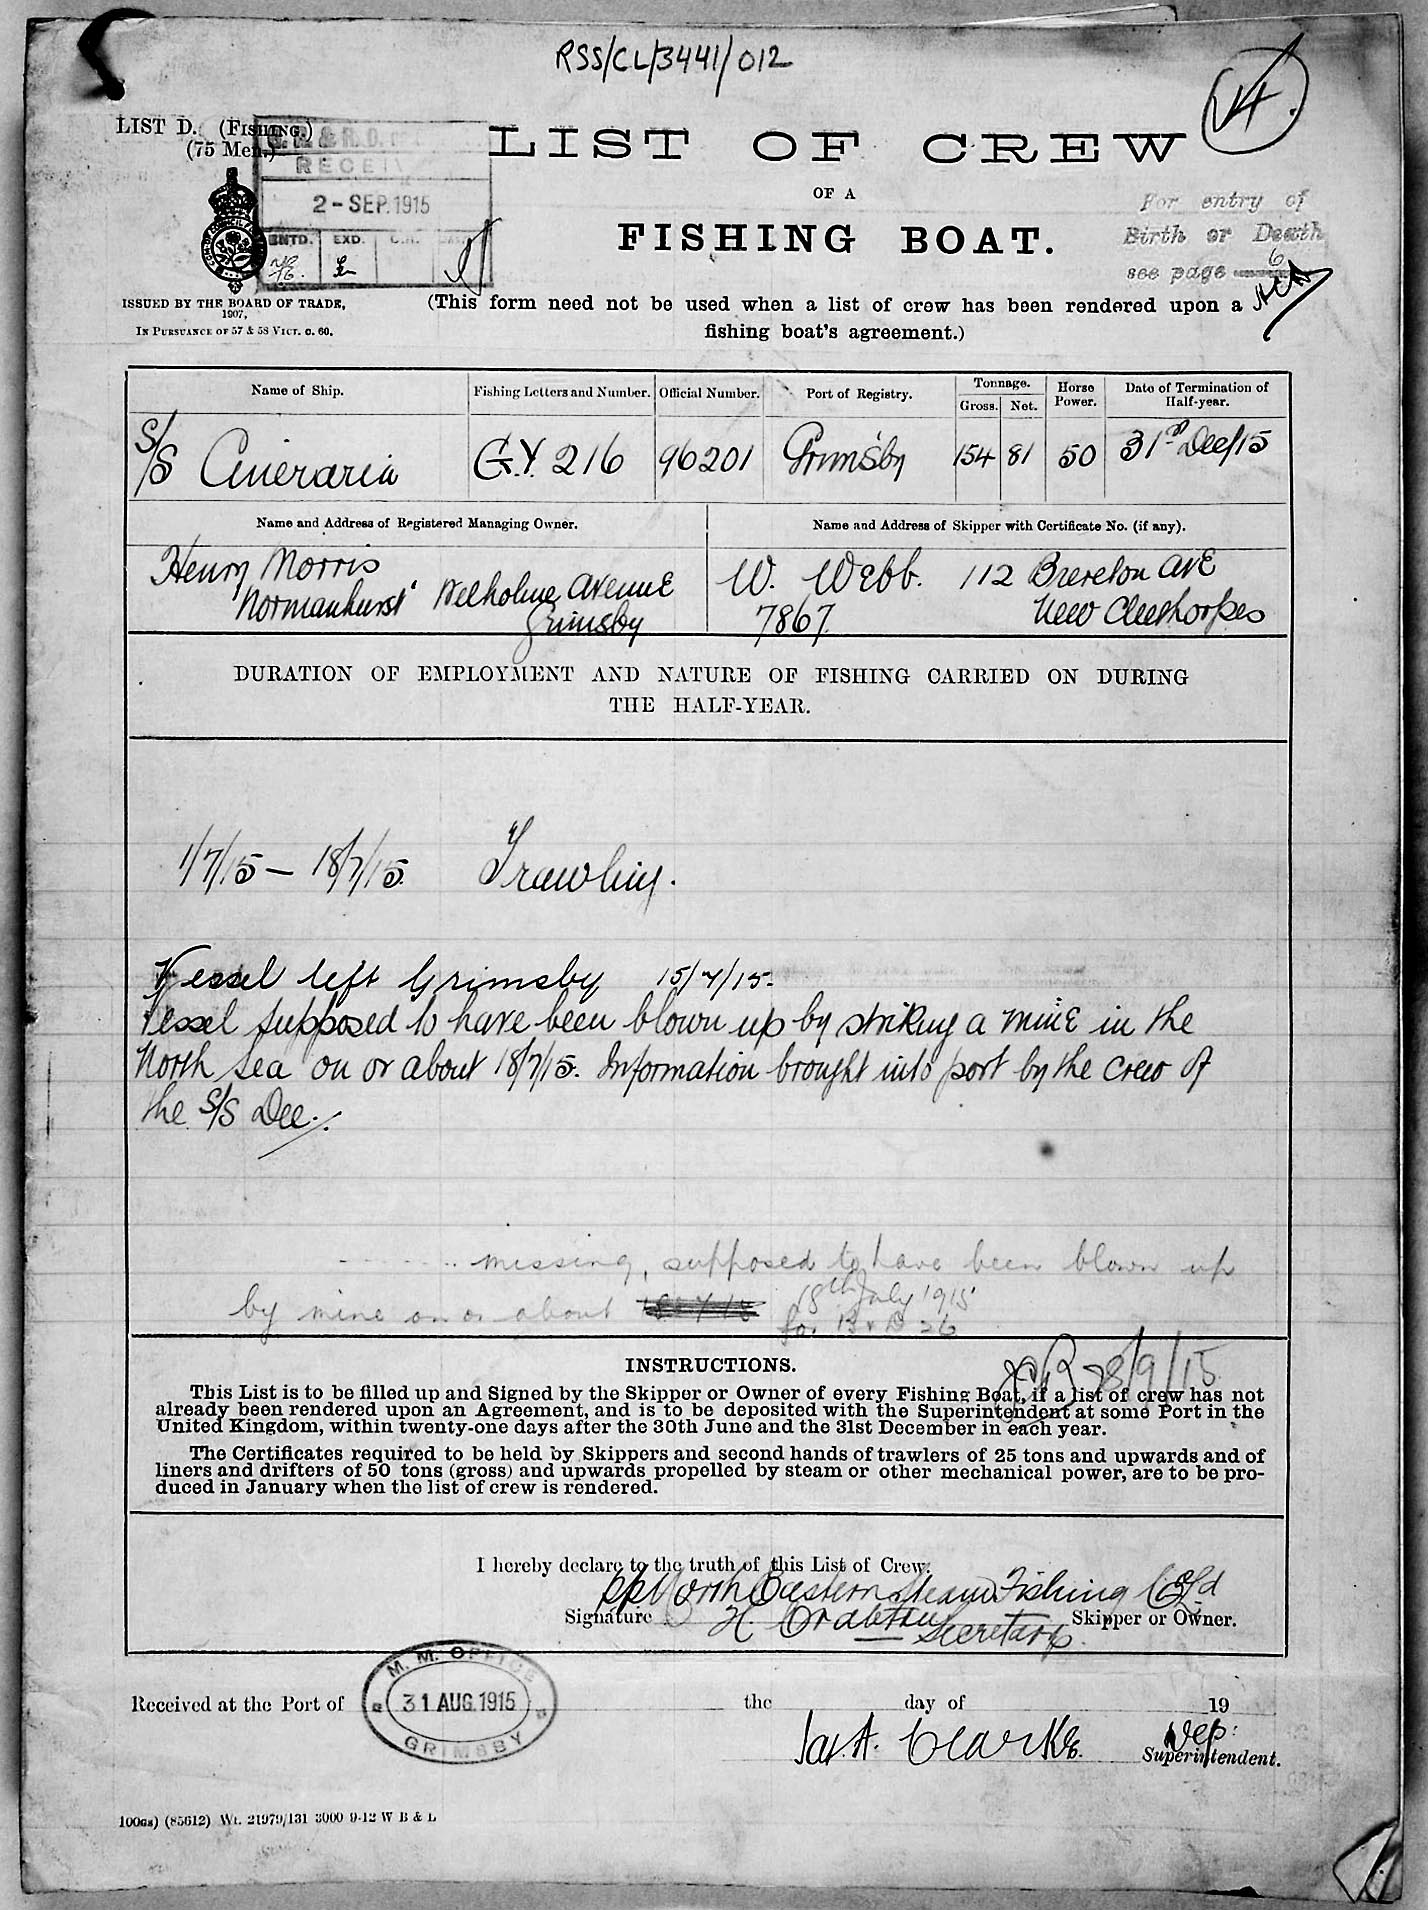 RSS/CL/3441/012
14.
LIST D. (FISHING.)
(75 Men.)
RECEIV
2-SEP.1915
ENTD. EXD. C.R.
LIST OF CREW
OF A
FISHING BOAT.
For entry of
Birth or Death
see page 6
ISSUED BY THE BOARD OF TRADE,
1907,
IN PURSUANCE OF 57 & 58 VICT. C. 60.
(This form need not be used when a list of crew has been rendered upon a
fishing boat's agreement.)
Name of Ship. Fishing Letters and Number. Official Number. Port of Registry. Tonnage. Gross. Net. Horse Power. Date of Termination of Half-year.
S/S Cineraria G.Y. 216 96201 Grimsby 154 81 50 31st Dec/15
Name and Address of Registered Managing Owner. Name and Address of Skipper with Certificate No. (if any).
Henry Morris W. Webb. 112 Brereton Ave
'Normanhurst' Welholme Avenue 7867 New Cleethorpes
Grimsby
DURATION OF EMPLOYMENT AND NATURE OF FISHING CARRIED ON DURING
THE HALF-YEAR.
1/7/15 – 18/7/15. Trawling.
Vessel left Grimsby 15/7/15.
Vessel supposed to have been blown up by striking a mine in the
North Sea on or about 18/7/15. Information brought into port by the crew of
the S/S Dee.
missing, supposed to have been blown up
by mine on or about 18th July 1915
for B & D 26
28/9/15
INSTRUCTIONS.
This List is to be filled up and Signed by the Skipper or Owner of every Fishing Boat, if a list of crew has not
already been rendered upon an Agreement, and is to be deposited with the Superintendent at some Port in the
United Kingdom, within twenty-one days after the 30th June and the 31st December in each year.
The Certificates required to be held by Skippers and second hands of trawlers of 25 tons and upwards and of
liners and drifters of 50 tons (gross) and upwards propelled by steam or other mechanical power, are to be pro-
duced in January when the list of crew is rendered.
I hereby declare to the truth of this List of Crew.
pp North Eastern Steam Fishing Co Ld
Signature H. Crabtree Secretary Skipper or Owner.
M. M. OFFICE
31 AUG. 1915
GRIMSBY
Received at the Port of the day of 19
Jas. A. Clarke. Dep:
Superintendent.
100Gs) (85612) Wt. 21979/131 3000 9-12 W B & L